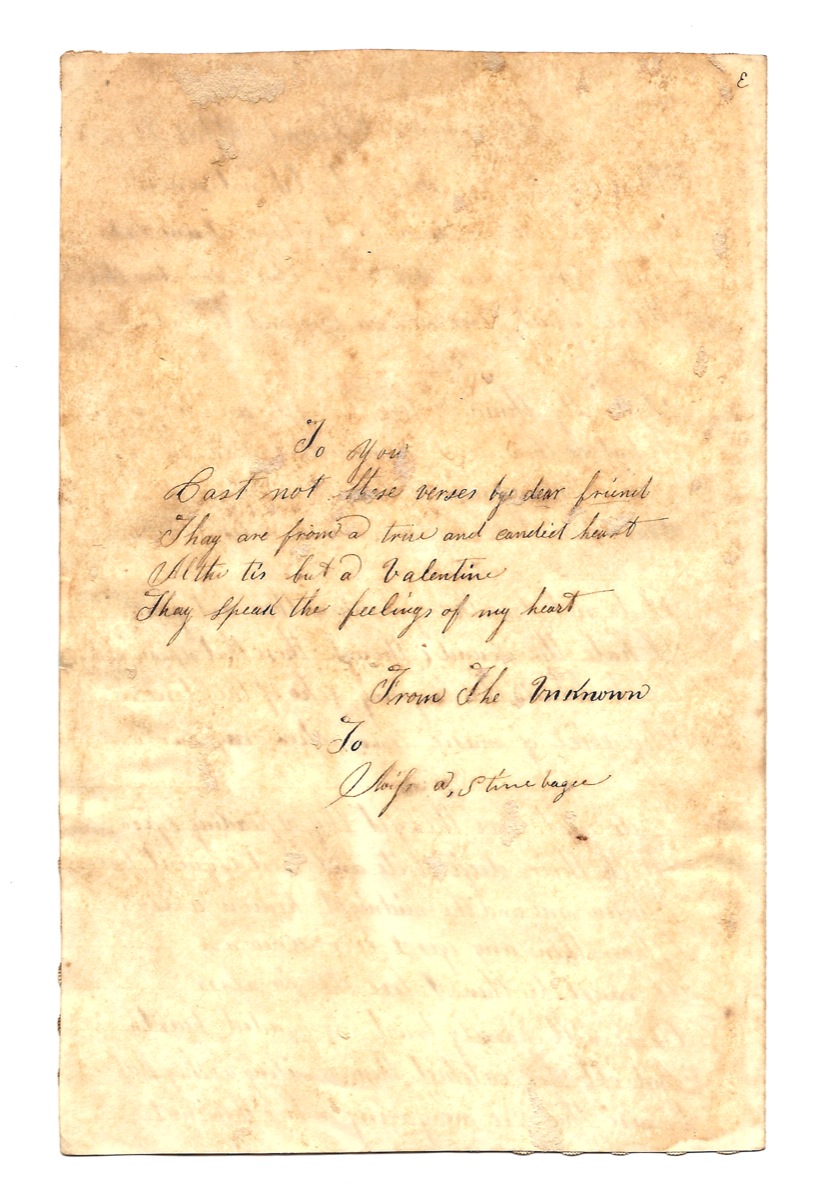 3
To You
Cast not these verses bye dear friend
Thay are from a true and candied heart
Altho tis but a Valentine
Thay speak the feelings of my heart
From The Unknown
To
Miss a,